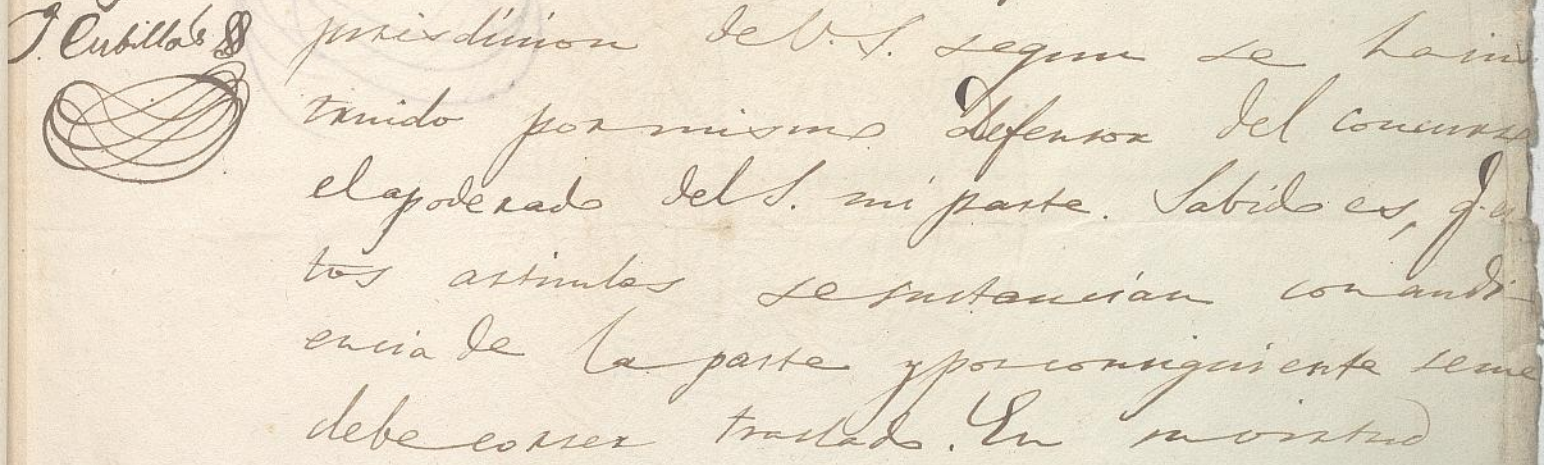 J. Cubillas
jurisdicion de V. S. segun se ha ins
truido por mismo defensor del concurso
el apoderado del S. mi parte. Sabido es, q. es
tos articulos se sustancian con audi
encia de la parte y por consiguiente se me
debe correr traslado. En su virtud